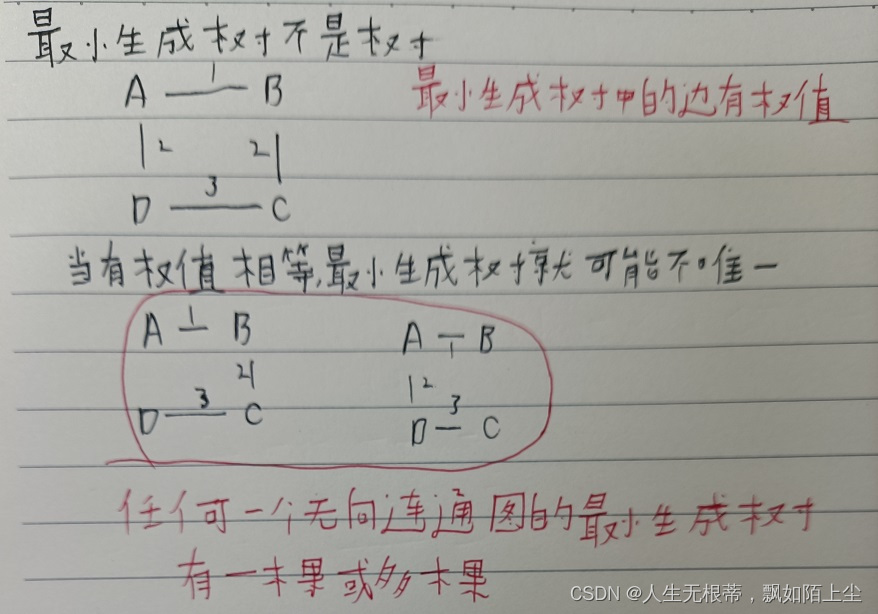 最小生成树不是树
A 1 B
最小生成树中的边有权值
2 2
D 3 C
当有权值相等,最小生成树就可能不唯一
A 1 B
A 1 B
2
2
D 3 C
D 3 C
任何可一个无向连通图的最小生成树
有一棵或多棵
CSDN @人生无根蒂,飘如陌上尘